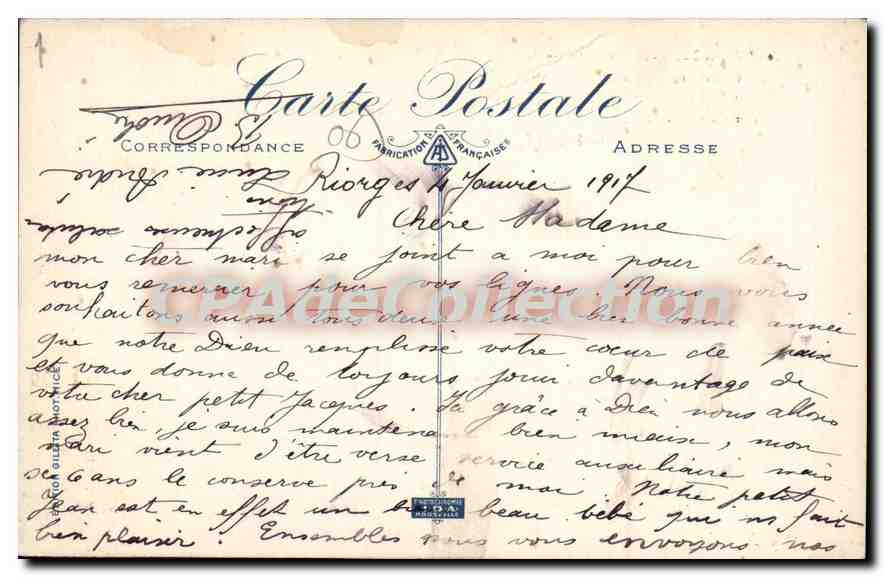 Carte Postale
CORRESPONDANCE
FABRICATION FRANÇAISE
ADRESSE
Riorges 4 Janvier 1917
Chère Madame
mon cher mari se joint a moi pour bien
vous remercier pour vos lignes. Nous vous
souhaitons aussi tous deux une bien bonne année
que notre Dieu remplisse votre cœur de paix
et vous donne de toujours jouir davantage de
votre cher petit Jacques. Ici grâce à Dieu nous allons
assez bien, je suis maintenant bien mieux, mon
mari vient d'être versé service auxiliaire mais
ses 6 ans le conserve près de moi. Notre petit
Jean est en effet un beau bébé qui ns fait
bien plaisir. Ensembles nous vous envoyons nos
affectueuses saluta
tions
Lucie André
CPAdeCollection
EDITION GILETTA
NICE